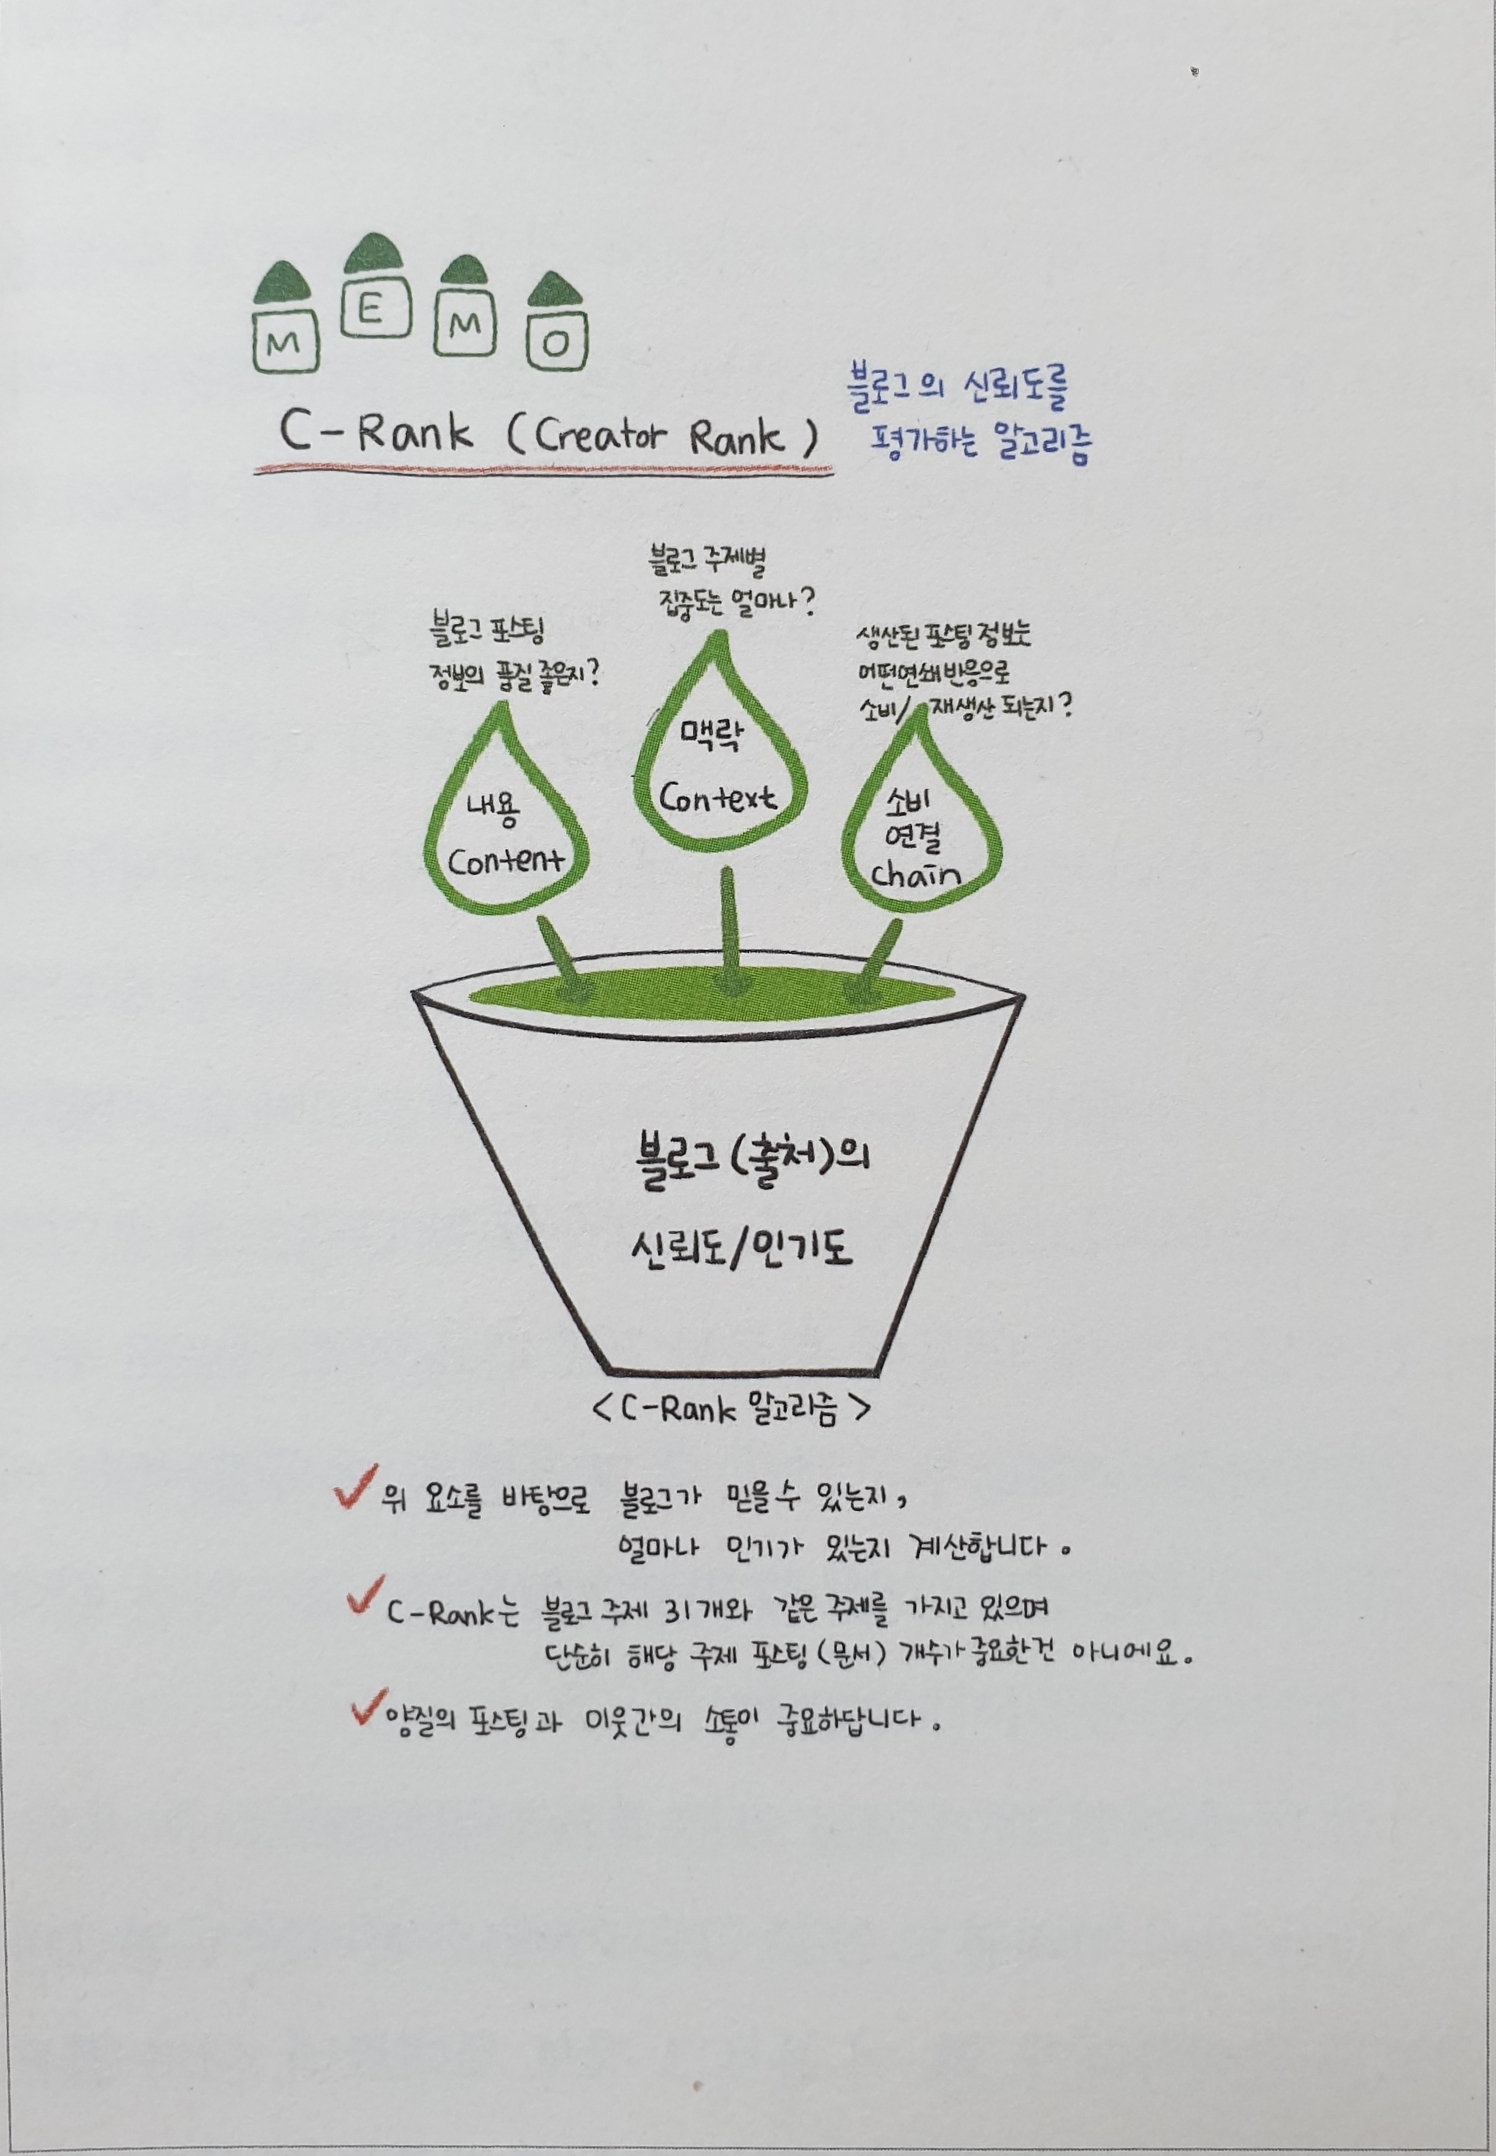 MEMO
C-Rank (Creator Rank)
블로그의 신뢰도를
평가하는 알고리즘
블로그 포스팅
정보의 품질 좋은지?
블로그 주제별
집중도는 얼마나?
생산된 포스팅 정보는
어떤연쇄반응으로
소비/재생산 되는지?
내용
Content
맥락
Context
소비
연결
Chain
블로그(출처)의
신뢰도/인기도
<C-Rank 알고리즘>
✓위 요소를 바탕으로 블로그가 믿을 수 있는지,
얼마나 인기가 있는지 계산합니다.
✓C-Rank는 블로그 주제 31개와 같은 주제를 가지고 있으며
단순히 해당 주제 포스팅(문서) 개수가 중요한건 아니에요.
✓양질의 포스팅과 이웃간의 소통이 중요하답니다.